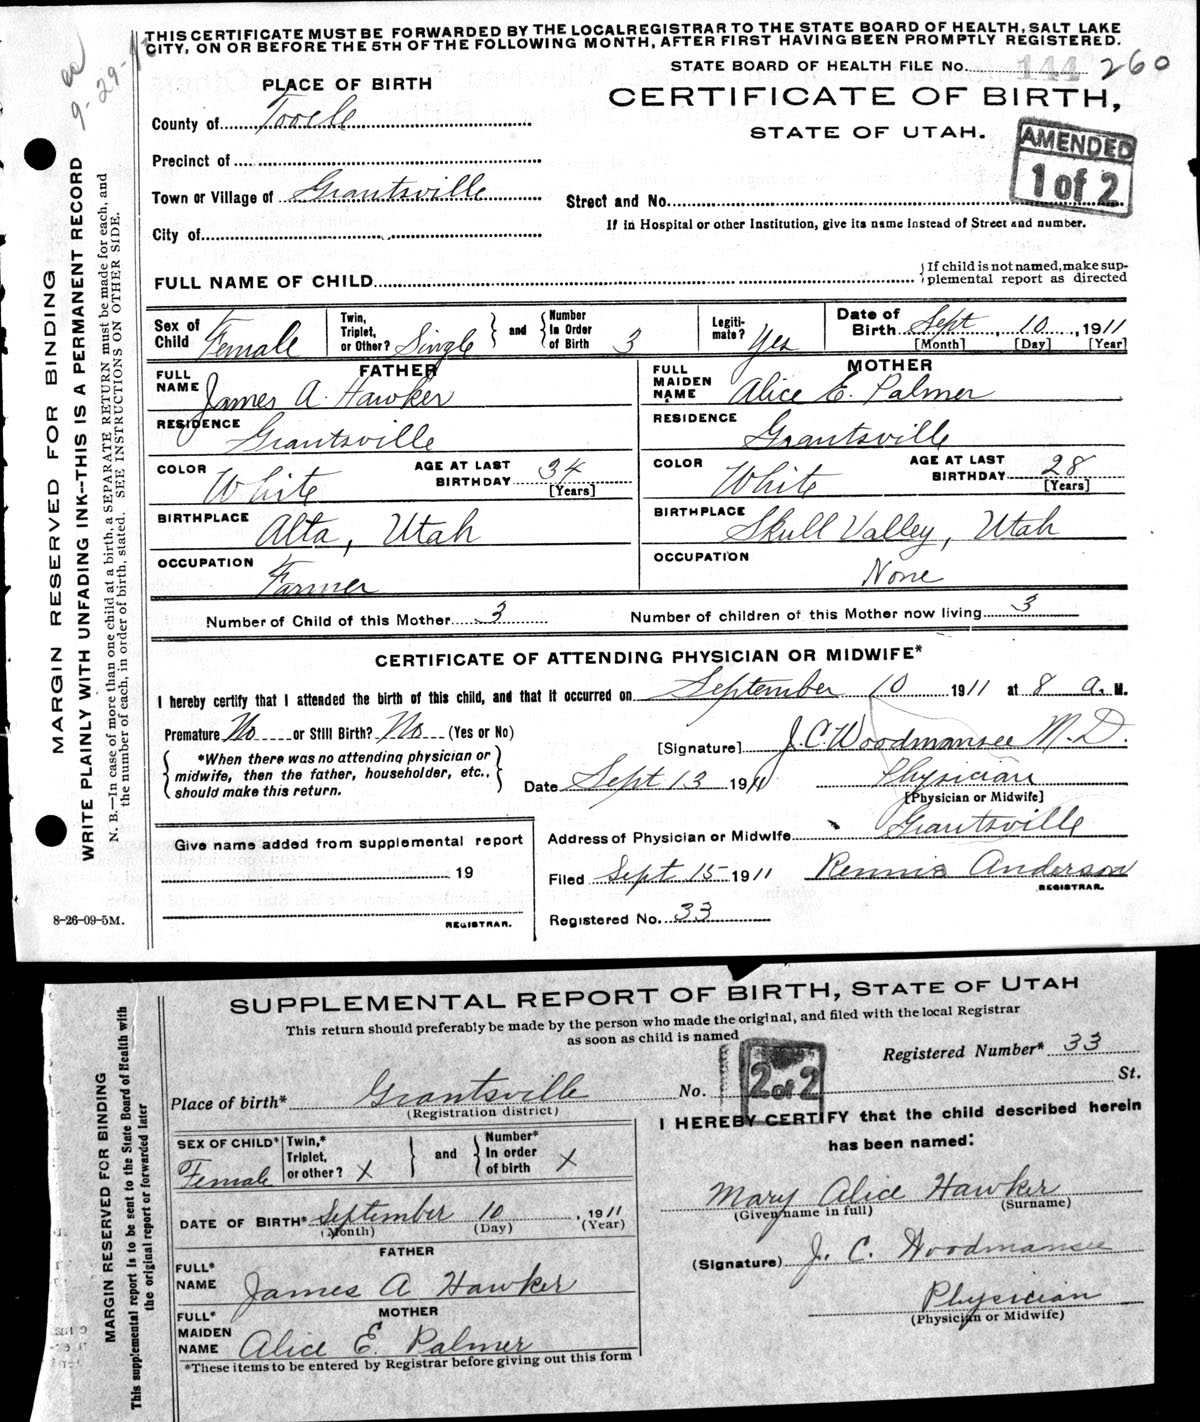 THIS CERTIFICATE MUST BE FORWARDED BY THE LOCAL REGISTRAR TO THE STATE BOARD OF HEALTH, SALT LAKE
CITY, ON OR BEFORE THE 5TH OF THE FOLLOWING MONTH, AFTER FIRST HAVING BEEN PROMPTLY REGISTERED.
STATE BOARD OF HEALTH FILE No. 144 260
9-29-
PLACE OF BIRTH
CERTIFICATE OF BIRTH,
STATE OF UTAH.
AMENDED
1 of 2
County of Tooele
Precinct of
Town or Village of Grantsville
Street and No.
If in Hospital or other Institution, give its name instead of Street and number.
City of
FULL NAME OF CHILD
If child is not named, make sup-
plemental report as directed
Sex of Child Female
Twin, Triplet, or Other? Single
and
Number In Order of Birth 3
Legiti-mate? Yes
Date of Birth Sept, 10, 1911
[Month] [Day] [Year]
FATHER
FULL NAME James A. Hawker
RESIDENCE Grantsville
COLOR White
AGE AT LAST BIRTHDAY 34
[Years]
BIRTHPLACE Alta, Utah
OCCUPATION Farmer
MOTHER
FULL MAIDEN NAME Alice E. Palmer
RESIDENCE Grantsville
COLOR White
AGE AT LAST BIRTHDAY 28
[Years]
BIRTHPLACE Skull Valley, Utah
OCCUPATION None
Number of Child of this Mother 3
Number of children of this Mother now living 3
CERTIFICATE OF ATTENDING PHYSICIAN OR MIDWIFE*
I hereby certify that I attended the birth of this child, and that it occurred on September 10 1911 at 8 a. M.
Premature No or Still Birth? No (Yes or No)
*When there was no attending physician or
midwife, then the father, householder, etc.,
should make this return.
[Signature] J. C. Woodmansee M. D.
Date Sept 13 1911
Physician
[Physician or Midwife]
Give name added from supplemental report
19
REGISTRAR.
Address of Physician or Midwife Grantsville
Filed Sept 15 1911 Rennie Anderson
REGISTRAR.
Registered No. 33
8-26-09-5M.
MARGIN RESERVED FOR BINDING
WRITE PLAINLY WITH UNFADING INK--THIS IS A PERMANENT RECORD
N. B.—In case of more than one child at a birth, a SEPARATE RETURN must be made for each, and
the number of each, in order of birth, stated. SEE INSTRUCTIONS ON OTHER SIDE.
SUPPLEMENTAL REPORT OF BIRTH, STATE OF UTAH
This return should preferably be made by the person who made the original, and filed with the local Registrar
as soon as child is named
Registered Number* 33
2 of 2
Place of birth* Grantsville No. St.
(Registration district)
SEX OF CHILD* Female
Twin,* Triplet, or other? X
and
Number* In order of birth X
DATE OF BIRTH* September 10, 1911
(Month) (Day) (Year)
FATHER
FULL* NAME James A Hawker
MOTHER
FULL* MAIDEN NAME Alice E. Palmer
*These items to be entered by Registrar before giving out this form
I HEREBY CERTIFY that the child described herein
has been named:
Mary Alice Hawker
(Given name in full) (Surname)
(Signature) J. C. Woodmansee
Physician
(Physician or Midwife)
MARGIN RESERVED FOR BINDING
This supplemental report is to be sent to the State Board of Health with
the original report or forwarded later